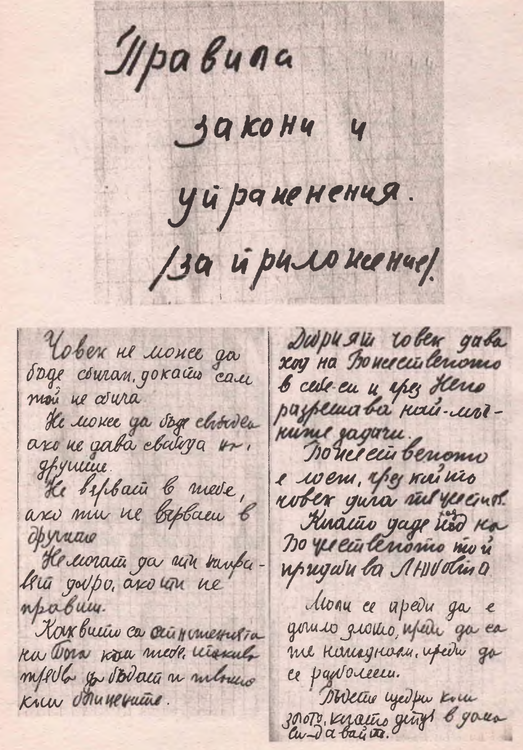 Правила
закони и
упражнения.
/за приложение/.
Човек не може да
бъде обичан, докато сам
той не обича.
Не може да бъде свободен
ако не дава свобода на
другите.
Не вярват в тебе,
ако ти не вярваш в
другите
Не могат да ти напра-
вят добро, ако ти не
правиш.
Каквито са отношенията
на Бога към тебе, такива
трябва да бъдат и твоите
към ближните.
Добрият човек дава
ход на Божественото
в себе си и чрез Него
разрешава най-мъч-
ните задачи.
Божественото
е лост, чрез който
човек дига тежести.
Когато даде ход на
Божественото той
придобива Любовта
Моли се преди да е
дошло злото, преди да са
те нападнали, преди да
се разболееш.
Бъдете щедри към
злото, когато дойде в дома
ви - давайте.